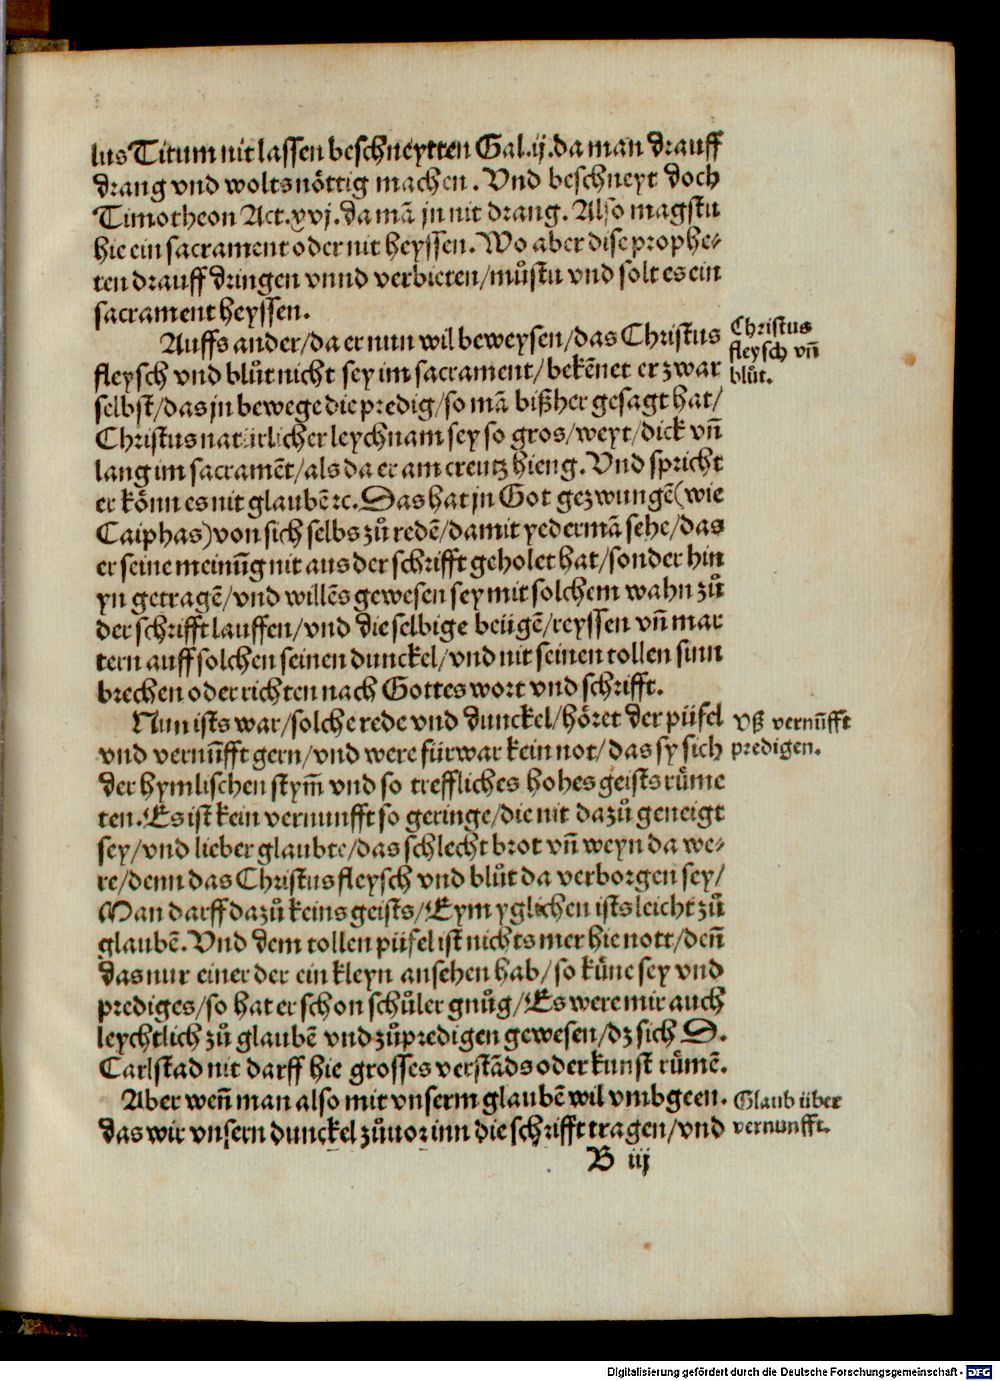 lus Titum nit lassen beschneytten Gal.ij. da man drauff
drang vnd wolts nöttig machen. Vnd beschneyt doch
Timotheon Act.xvj. da mā jn nit drang. Also magstu
hie ein sacrament oder nit heyssen. Wo aber dise prophe⸗
ten drauff dringen vnnd verbieten/ muͦstu vnd solt es ein
sacrament heyssen.
Auffs ander/ da er nun wil beweysen/ das Christus
fleysch vnd bluͦt nicht sey im sacrament/ bekēnet er zwar
selbst/ das jn bewege die predig/ so mā bißher gesagt hat/
Christus natürlicher leychnam sey so gros/ weyt/ dick vñ
lang im sacramēt/ als da er am creutz hieng. Vnd spricht
er könn es nit glaubē ⁊c. Das hat jn Got gezwungē (wie
Caiphas) von sich selbs zuͦ redē/ damit yedermā sehe/ das
er seine meinūg nit aus der schrifft geholet hat/ sonder hin
yn getragē/ vnd willēs gewesen sey mit solchem wahn zuͦ
der schrifft lauffen/ vnd die selbige beügē/ reyssen vñ mar
tern auff solchen seinen dunckel/ vnd nit seinen tollen sinn
brechen oder richten nach Gottes wort vnd schrifft.
Nun ists war/ solche rede vnd dunckel/ höret der püfel
vnd vernūfft gern/ vnd were fürwar kein not/ das sy sich
der hymlischen stym̄ vnd so treffliches hohes geists ruͤme
ten. Es ist kein vernunfft so geringe/ die nit dazuͦ geneigt
sey/ vnd lieber glaubte/ das schlecht brot vñ weyn da we⸗
re/ denn das Christus fleysch vnd bluͦt da verborgen sey/
Man darff dazuͦ keins geists/ Eym yglichen ists leicht zuͦ
glaubē. Vnd dem tollen püfel ist nichts mer hie nott/ deñ
das nur einer der ein kleyn ansehen hab/ so kuͤne sey vnd
prediges/ so hat er schon schuͦler gnuͦg/ Es were mir auch
leychtlich zuͦ glaubē vnd zuͦpredigen gewesen/ dz sich D.
Carlstad nit darff hie grosses verstāds oder kunst ruͤmē.
Aber weñ man also mit vnserm glaubē wil vmbgeen.
das wir vnsern dunckel zuͦuor inn die schrifft tragen/ vnd
B iij
Christus
fleysch vñ
bluͦt.
Vß vernūfft
predigen.
Glaub über
vernunfft.
Digitalisierung gefördert durch die Deutsche Forschungsgemeinschaft - DFG